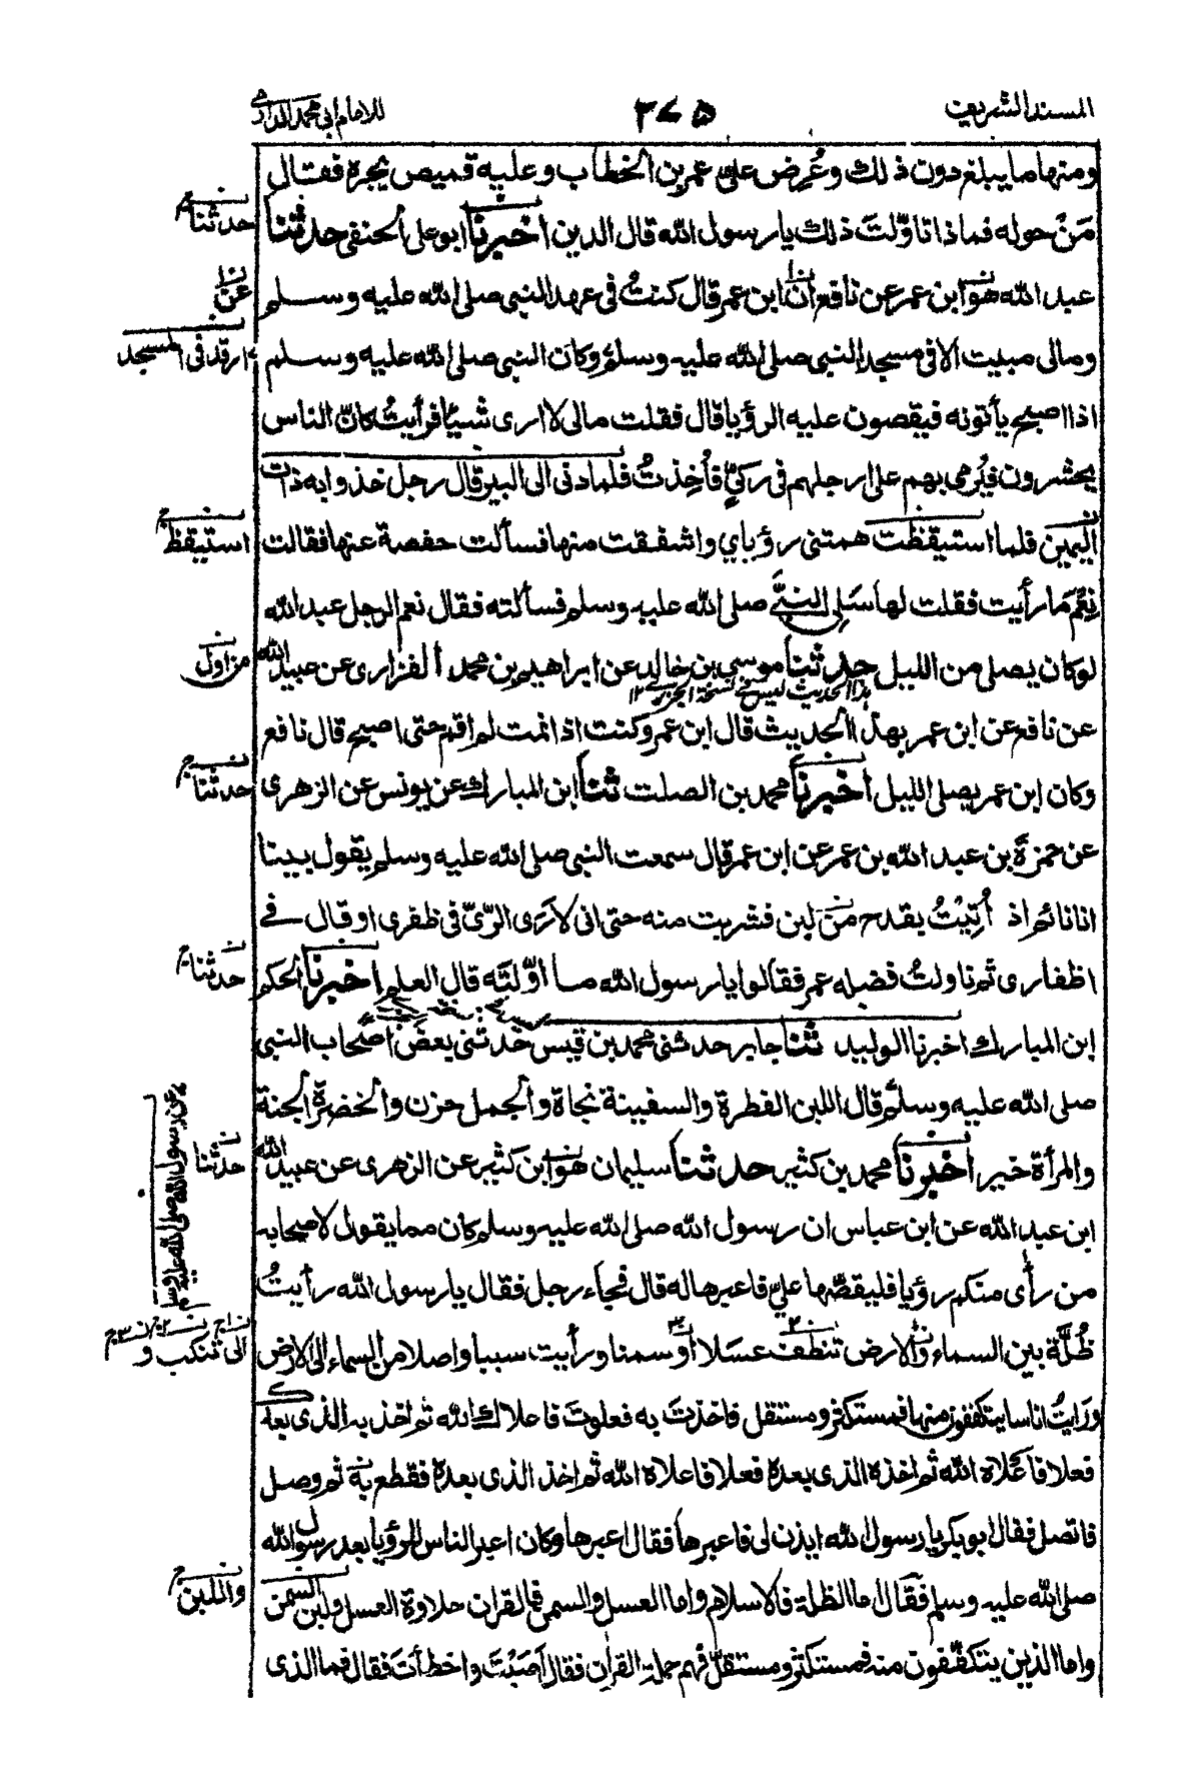 المسند الشريف
٢٧٥
للامام ابي محمد الدارمي
ومنها ما يبلغ دون ذلك وعُرِض عليّ عمر بن الخطاب وعليه قميص يجره فقال
مَنْ حوله فماذا تاوّلتَ ذلك يا رسول الله قال الدين اخبرنا ابو علي الحنفي حدثنا
حدثنا
عبد الله هو ابن عمر عن نافع ان ابن عمر قال كنتُ في عهد النبي صلى الله عليه وسلم
عن
ومالي مبيت الا في مسجد النبي صلى الله عليه وسلم وكان النبي صلى الله عليه وسلم
ارقد في المسجد
اذا اصبح يأتونه فيقصون عليه الرؤيا قال فقلت مالي لا ارى شيئا فرأيتُ كانّ الناس
يحشرون فيُرمى بهم على ارجلهم في ركيّ فأُخِذتُ فلما دنى الى البير قال رجل خذوا به ذات
اليمين فلما استيقظت همتني رؤياي واشفقت منها فسألت حفصة عنها فقالت
استيقظ
نِعْمَ مَا رأيت فقلت لها سَلِي النبيَّ صلى الله عليه وسلم فسألته فقال نعم الرجل عبد الله
لو كان يصلي من الليل حدثنا موسى بن خالد عن ابراهيم بن محمد الفزاري عن عبيد الله
من اول
هذا الحديث ليس في نسخة ١٢
عن نافع عن ابن عمر بهذا الحديث قال ابن عمر وكنت اذا نمت لم اقم حتى اصبح قال نافع
وكان ابن عمر يصلي الليل اخبرنا محمد بن الصلت ثنا ابن المبارك عن يونس عن الزهري
حدثنا
عن حمزة بن عبد الله بن عمر عن ابن عمر قال سمعت النبي صلى الله عليه وسلم يقول بينا
انا نائم اذ أُتِيْتُ بقدح من لبن فشربت منه حتى اني لاَرَى الرّيّ في ظفري او قال في
اظفاري ثم ناولتُ فضله عمر فقالوا يا رسول الله ما اوّلتَه قال العلم اخبرنا الحكم
حدثنا
ابن المبارك اخبرنا الوليد ثنا جابر حدثني محمد بن قيس حدثني بعض اصحاب النبي
صلى الله عليه وسلم قال اللبن الفطرة والسفينة نجاة والجمل حزن والخضرة الجنة
والمرأة خير اخبرنا محمد بن كثير حدثنا سليمان هو ابن كثير عن الزهري عن عبيد الله
حدثنا
عن رسول الله صلى الله عليه وسلم
ابن عبد الله عن ابن عباس ان رسول الله صلى الله عليه وسلم كان مما يقول لاصحابه
من رأى منكم رؤيا فليقصّها عليّ فاعبرها له قال فجاء رجل فقال يا رسول الله رأيتُ
ظُلَّة بين السماء والارض تنطف عسلا او سمنا ورأيت سببا واصلا من السماء الى الارض
الى تنكب و
ورايتُ اناسا يتكففون منها فمستكثر ومستقل فاخذتَ به فعلوتَ فاعلاك الله ثم اخذ به الذي بعدك
فعلا فاعلاه الله ثم اخذه الذي بعده فعلا فاعلاه الله ثم اخذ الذي بعده فقطع به ثم وصل
فاتصل فقال ابو بكر يا رسول الله ايذن لي فاعبرها فقال اعبرها وكان اعبر الناس للرؤيا بعد رسول الله
صلى الله عليه وسلم فقال اما الظلة فالاسلام واما العسل والسمن فالقران حلاوة العسل ولين السمن
واللبن
واما الذين يتكففون منه فمستكثر ومستقلّ فهم حملة القران فقال اَصَبْتَ واخطأتَ فقال فما الذي